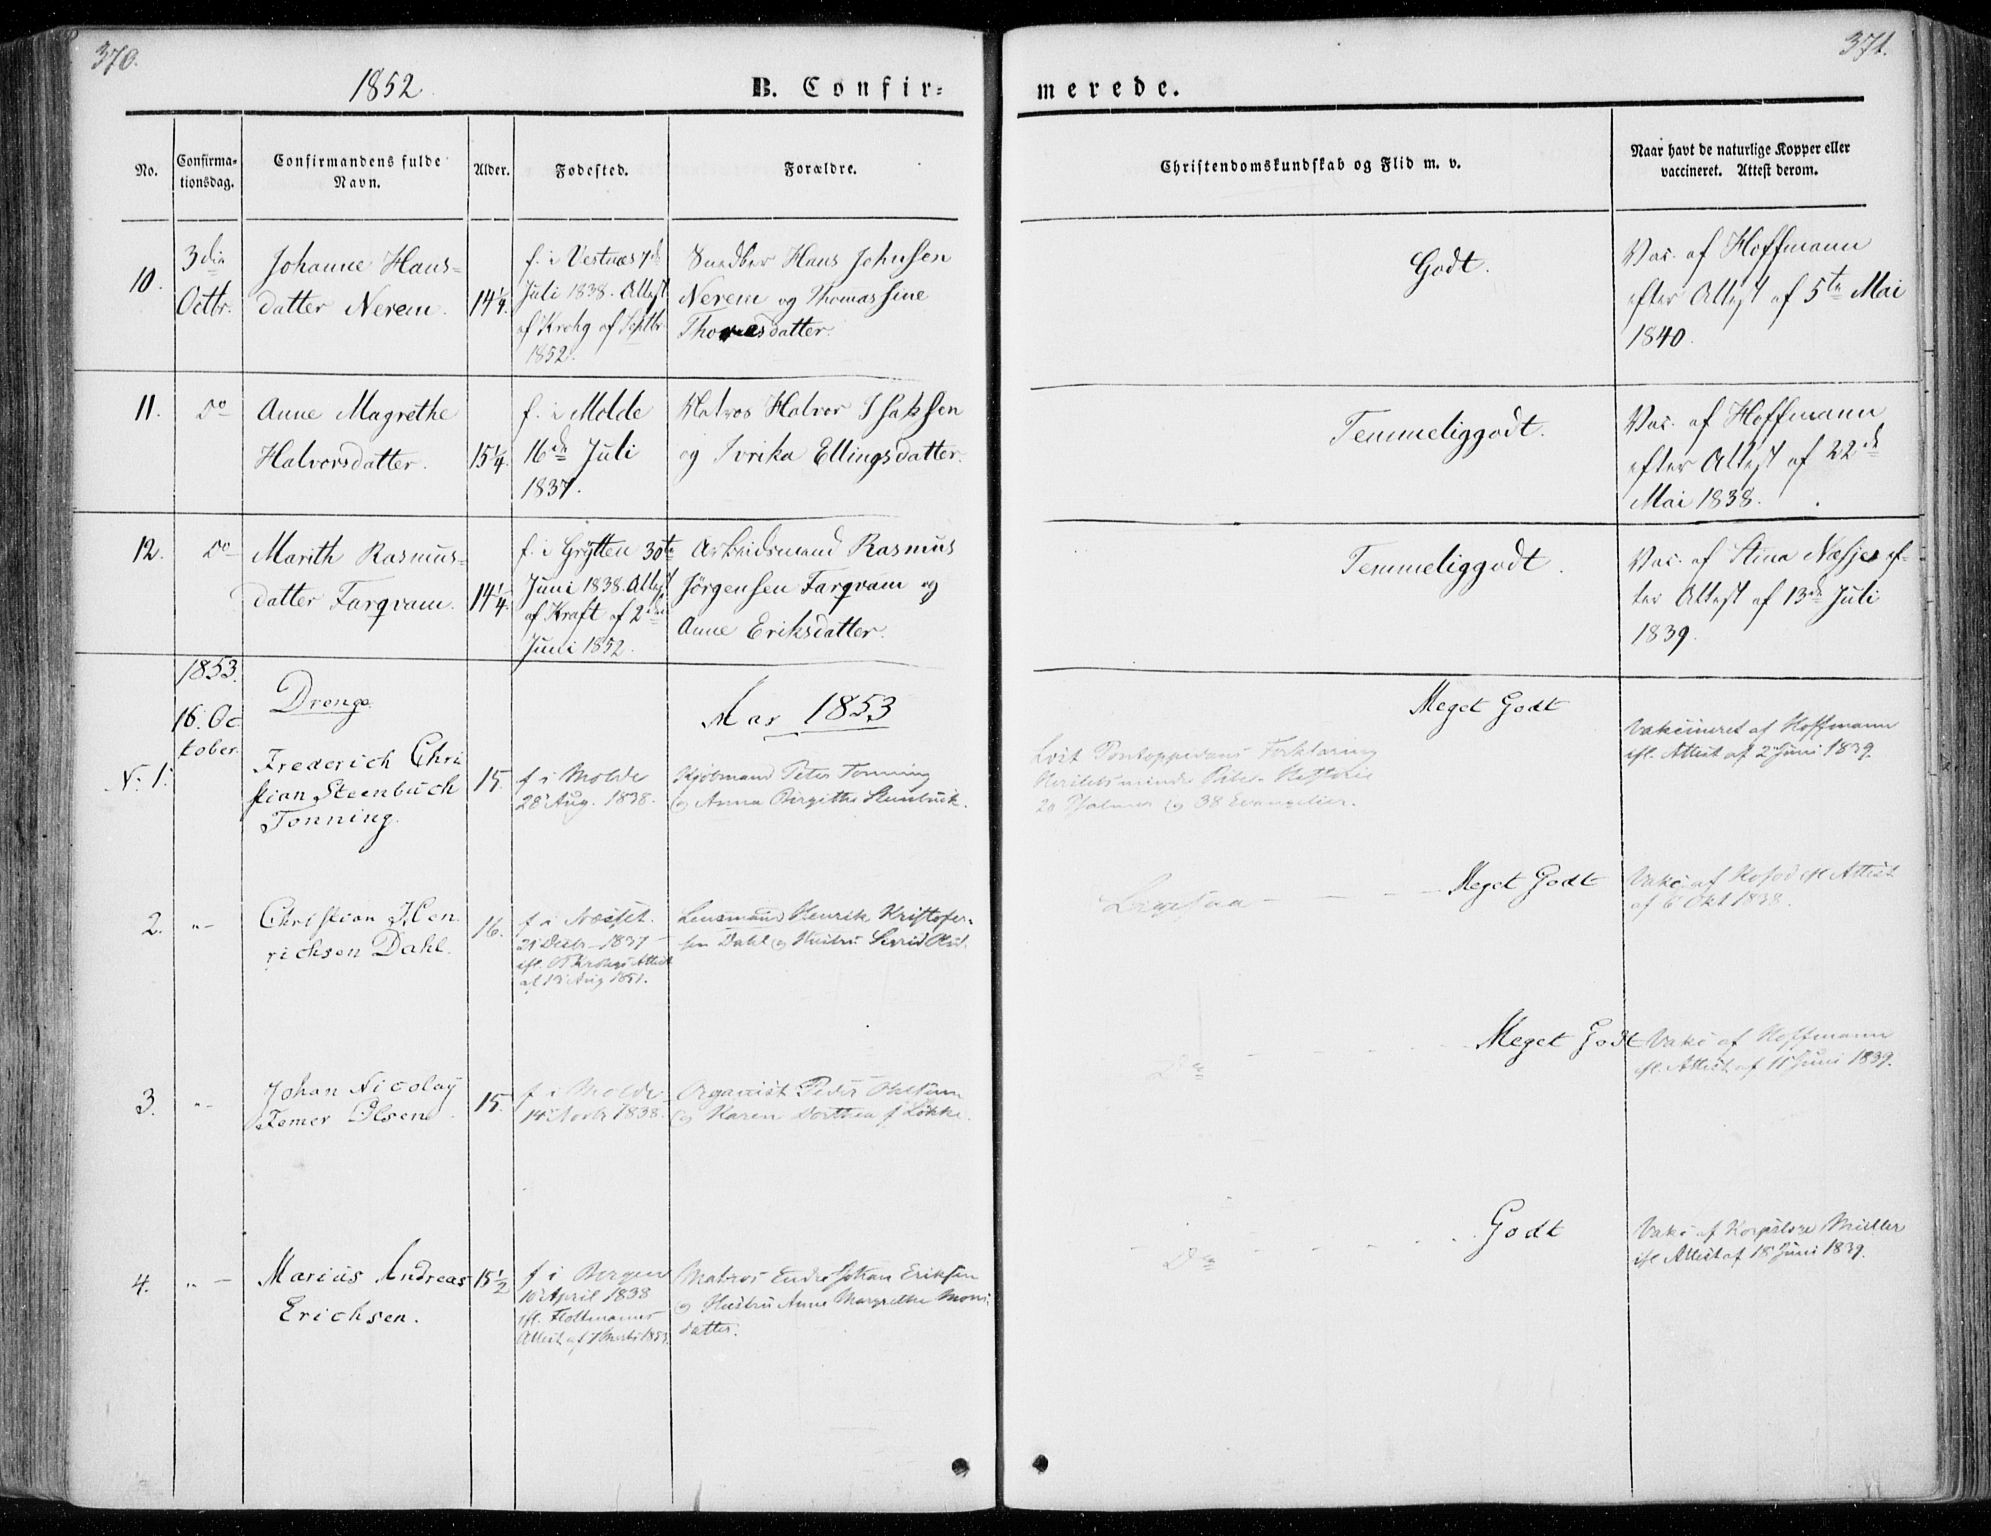 370.
371.
1852
B. Confir=
merede.
No.
Confirma=
tionsdag.
Confirmandens fulde
Navn.
Alder.
Fødested.
Forældre.
Christendomskundskab og Flid m. v.
Naar havt de naturlige Kopper eller
vaccineret. Attest derom.
10.
3die
Octbr.
Johanne Hans=
datter Nerem.
14 1/4.
f. i Vestnæs 7de
Juli 1838. Attest
af Krohg af Septbr
1852.
Hans Johnsen
Nerem og Thomassine
Thomasdatter.
Godt.
Vac. af Hoffmann
efter Attest af 5te Mai
1840.
11.
Do
Anne Magrethe
Halvorsdatter.
15 1/4.
f. i Molde
16de Juli
1837.
Matros Halvor Isaksen
og Ellingsdatter.
Temmeliggodt.
Vac. af Hoffmann
efter Attest af 22de
Mai 1838.
12.
Do
Marith Rasmus=
datter Farqvam.
14 1/4.
f. i Grytten 30te
Juni 1838. Attest
af Kraft af 2den
Juni 1852.
Arbeidsmand Rasmus
Jörgensen Farqvam og
Anne Eriksdatter.
Temmeliggodt.
Vac. af Stina Næsje ef=
ter Attest af 13de Juli
1839.
1853.
16. Oc
tober.
Drenge
Aar 1853
N. 1.
Frederich Chri
stian Steenbuch
Tonning.
15.
f i Molde
28 Aug. 1838.
Kjöbmand Peter Tonning
og Anna Birgithe Stenbuck.
Meget Godt
Læst Pontoppidans Forklaring
Bibel Historie
20 Psalmer og 38 Evangelier.
Vakcineret af Hoffmann
ifl. Attest af 2 Juni 1839.
2.
"-
Christian Hen
richsen Dahl.
16.
f i Næsset.
21 Decbr 1837
ifl. Krohgs Attest
af Aug 1851.
Lensmand Henrik Kristofer-
sen Dahl og Hustru
Ligesaa - - - Meget Godt
Vakc. af ifl Attest
af 6 Okt 1838.
3.
"-
Johan Nicolay
Zemer Olsen
15.
f i Molde
14 Novbr 1838.
Organist Peder Olsen
og Karen Dorthea f Lökke.
Do - - - Meget Godt
Vakc af Hoffmann
ifl. Attest af 11 Juni 1839.
4.
" -
Marius Andreas
Erichsen.
15 1/2
f i Bergen
10 April 1838
ifl.
Attest af
Matros Endre Johan Eriksen
og Hustru Anne Margrethe Mons
datter.
Do - - - Godt
Vakc af Müller
ifl. Attest af 18 Juni 1839.